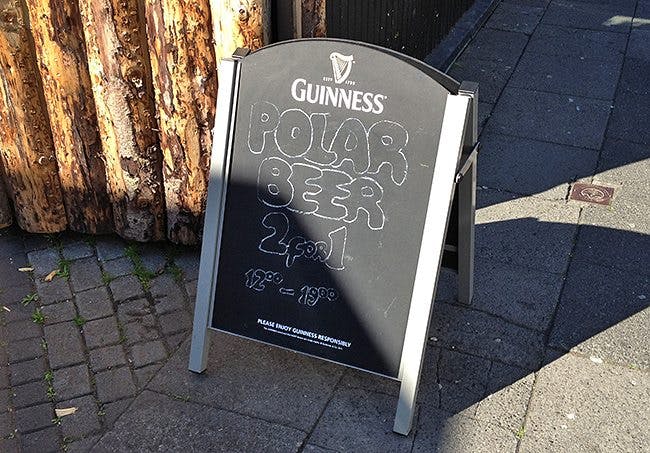 GUINNESS
POLAR
BEER
2 FOR 1
12:00 - 19:00
PLEASE ENJOY GUINNESS RESPONSIBLY